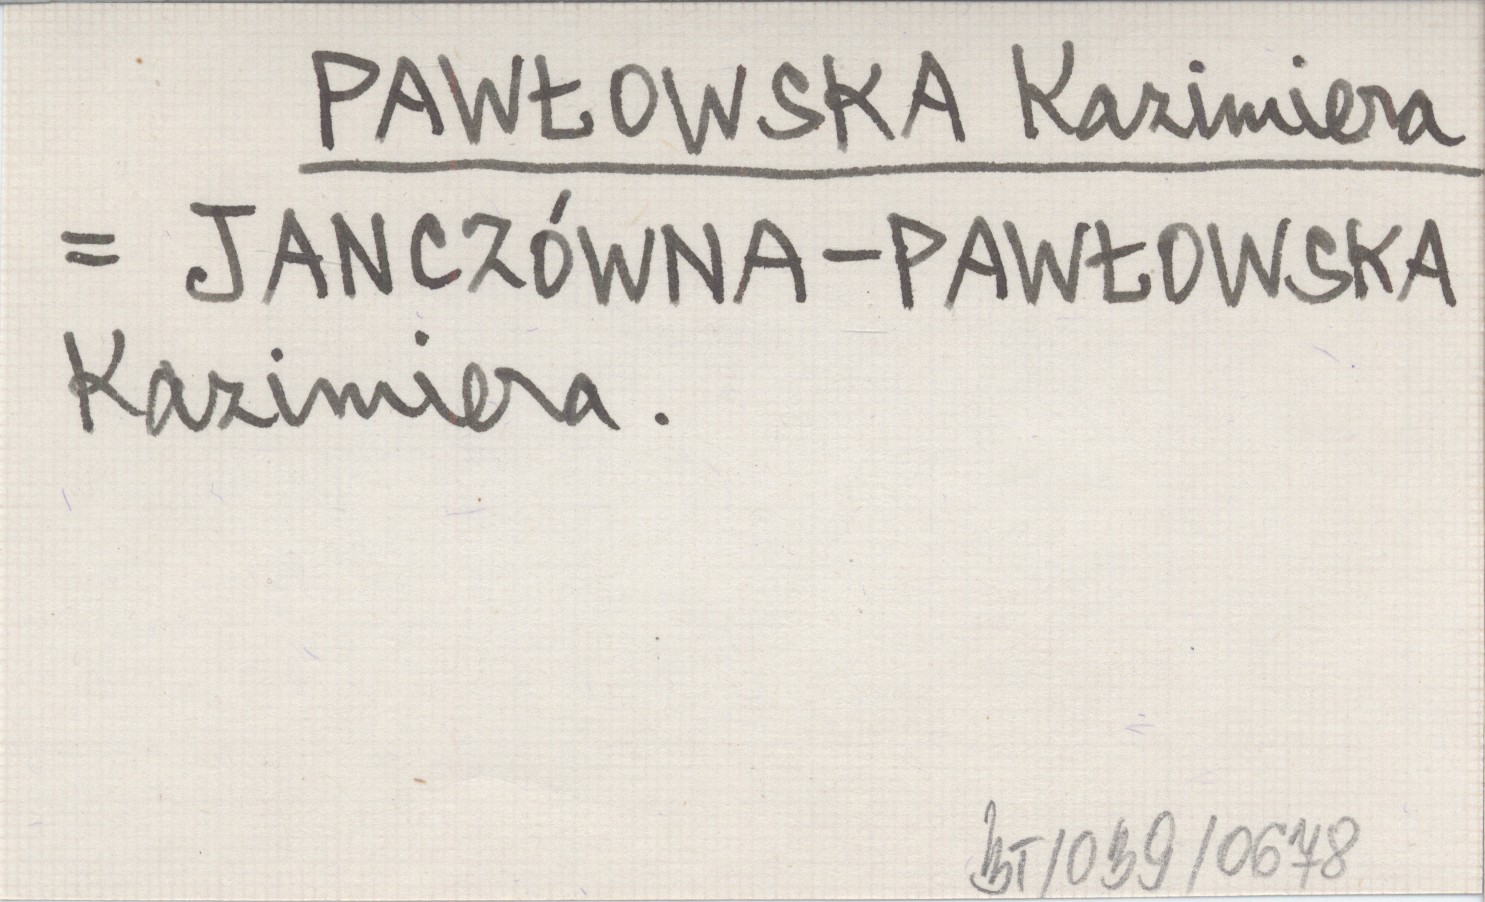 PAWŁOWSKA Kazimiera
= JANCZÓWNA-PAWŁOWSKA
Kazimiera.
BT/039/0678